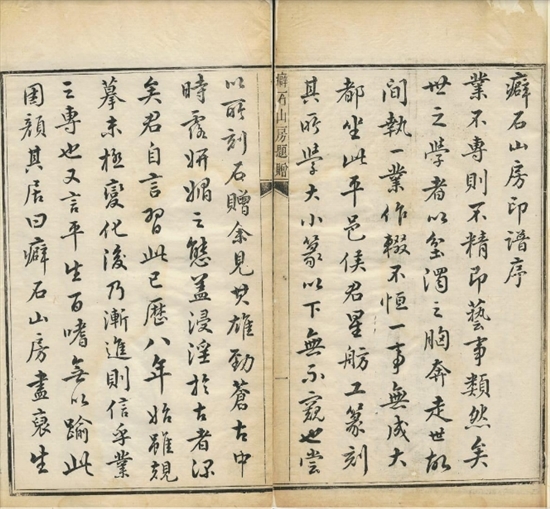 癖石山房印譜序
業不專則不精即藝事類然矣
世之學者以坌濁之胸奔走世故
間執一業作輟不恒一事無成大
都坐此平邑侯君星舫工篆刻
其所學大小篆以下無不窺也嘗
癖石山房題贈
一
以所刻石贈余見其雄勁蒼古中
時露妍媚之態蓋浸淫於古者深
矣君自言習此已歷八年始雖規
摹未極變化後乃漸進則信乎業
之專也又言平生百嗜無以踰此
因顏其居曰癖石山房盡裒生